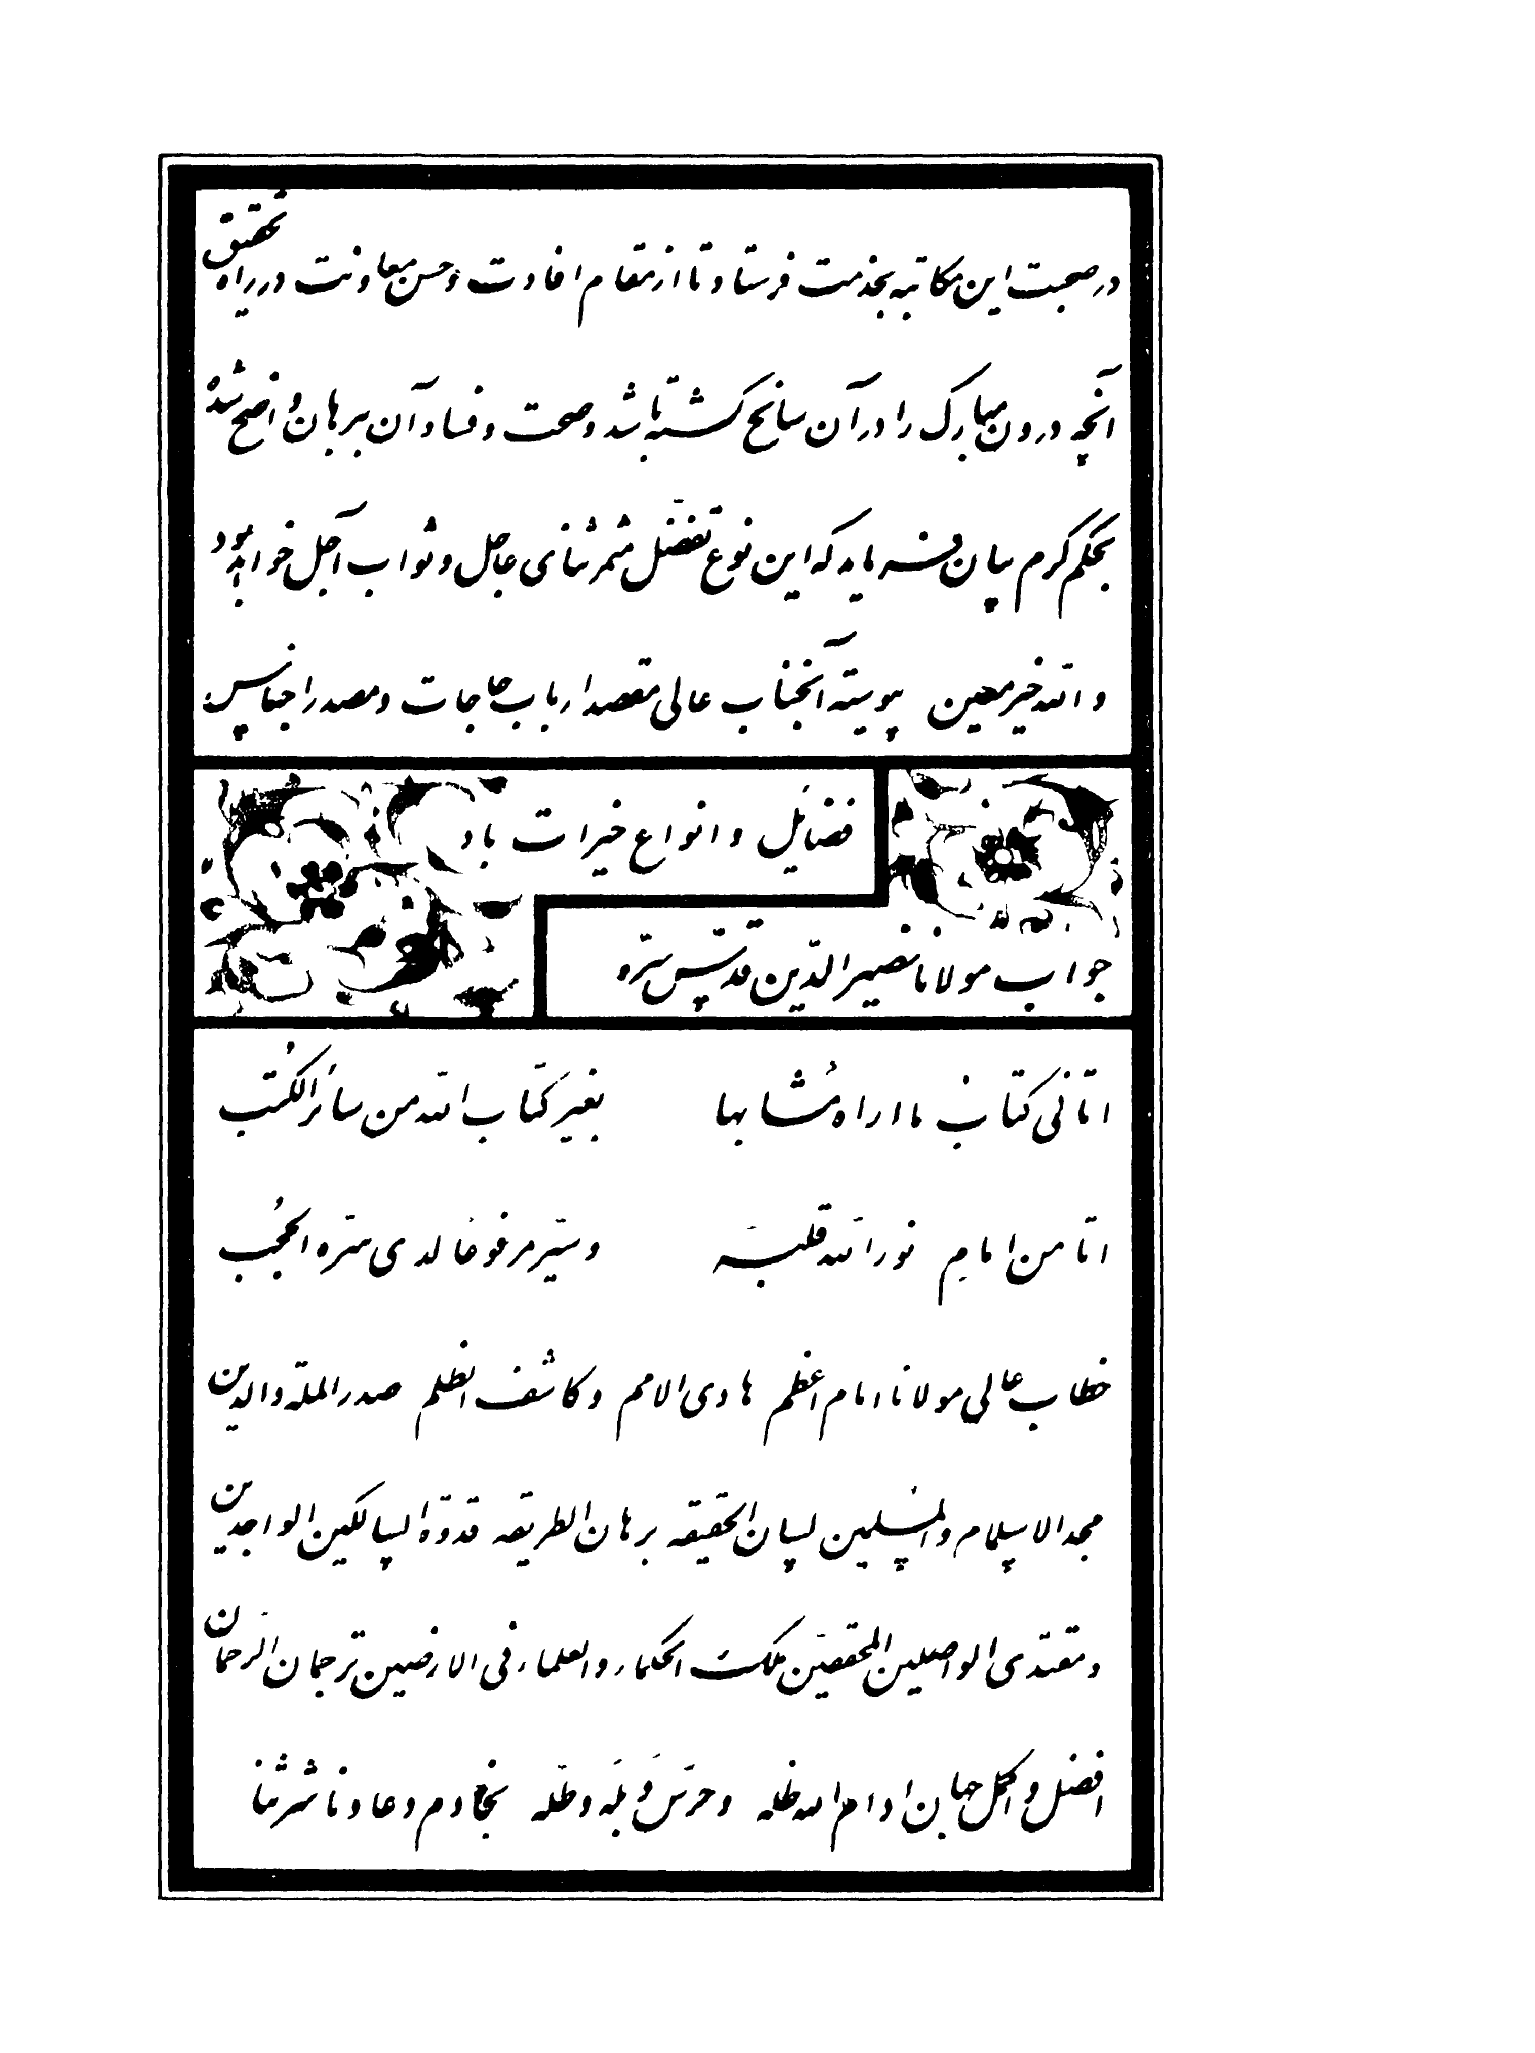 در صحبت این مکاتبه بخدمت فرستاد تا از مقام افادت و حسن معاونت در راه تحقیق
آنچه درون مبارک را در آن سانح گشته باشد و صحت و فساد آن ببرهان واضح شده
بحکم کرم بیان فرماید که این نوع تفضّل مثمر ثنای عاجل و ثواب آجل خواهد بود
و الله خیر معین پیوسته آنجناب عالی مقصد ارباب حاجات و مصدر اجناس
فضایل و انواع خیرات باد
جواب مولانا نصیر الدّین قدّس سرّه
اتانی کتاب ما اراه مُشابها بغیر کتاب الله من سائر الکُتب
اتا من امامٍ نور الله قلبَه و سیّر مرفوعا لدی سرّه الحُجب
خطاب عالی مولانا امام اعظم هادی الامم و کاشف الظلم صدر الملّة و الدین
مجد الاسلام و المسلمین لسان الحقیقه برهان الطریقه قدوة السالکین الواجدین
و مقتدی الواصلین المحققین ملک الحکماء و العلماء فی الارضین ترجمان الرّحمان
افضل و اکمل جهان ادام الله ظله و حرس وبله و طلّه بخادم دعا و ناشر ثنا